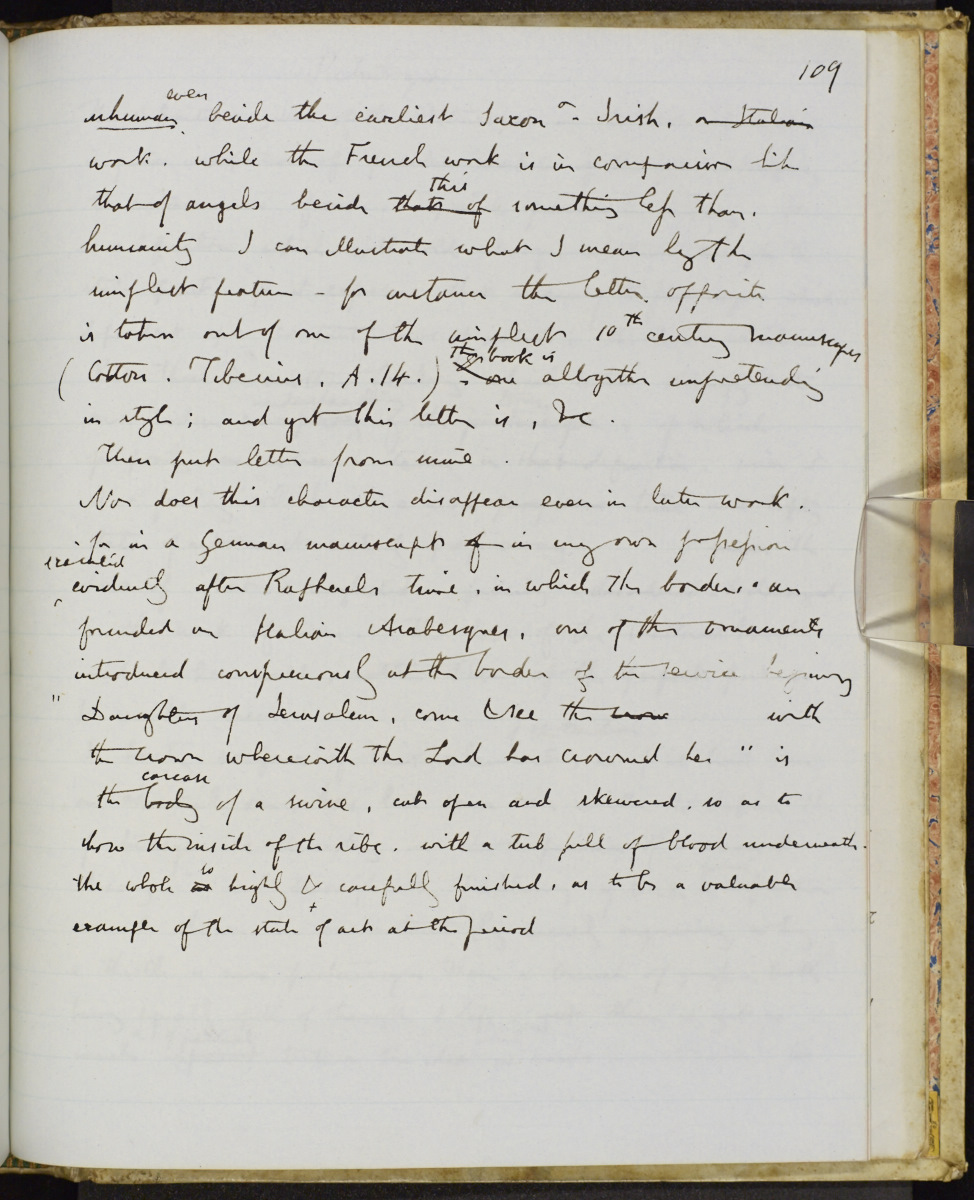 109
even
inhuman, beside the earliest Saxon or Irish, or Italian
work. while the French work is in comparison like
this
that of angels beside that of something less than
humanity I can illustrate what I mean by the
simplest feature - for instance the letter opposite
is taken out of one of the simplest 10th century manuscripts
The book is
(Cotton. Tiberius. A.14.) : one altogether unpretending
in style; and yet this letter is, &c.
Then put letter from mine.
Nor does this character disappear even in later work.
for in a German manuscript of in my own possession
executed
evidently after Raffaels time, in which the borders are
founded on Italian Arabesques, one of the ornaments
introduced conspicuously at the border of the service beginning
"Daughters of Jerusalem, come & see the crow with
the crown wherewith the Lord has crowned her" is
carcase
the body of a swine, cut open and skewered, so as to
show the inside of the ribs. with a tub full of blood underneath.
so
the whole as highly & carefully finished, as to be a valuable
example of the state of art at the period